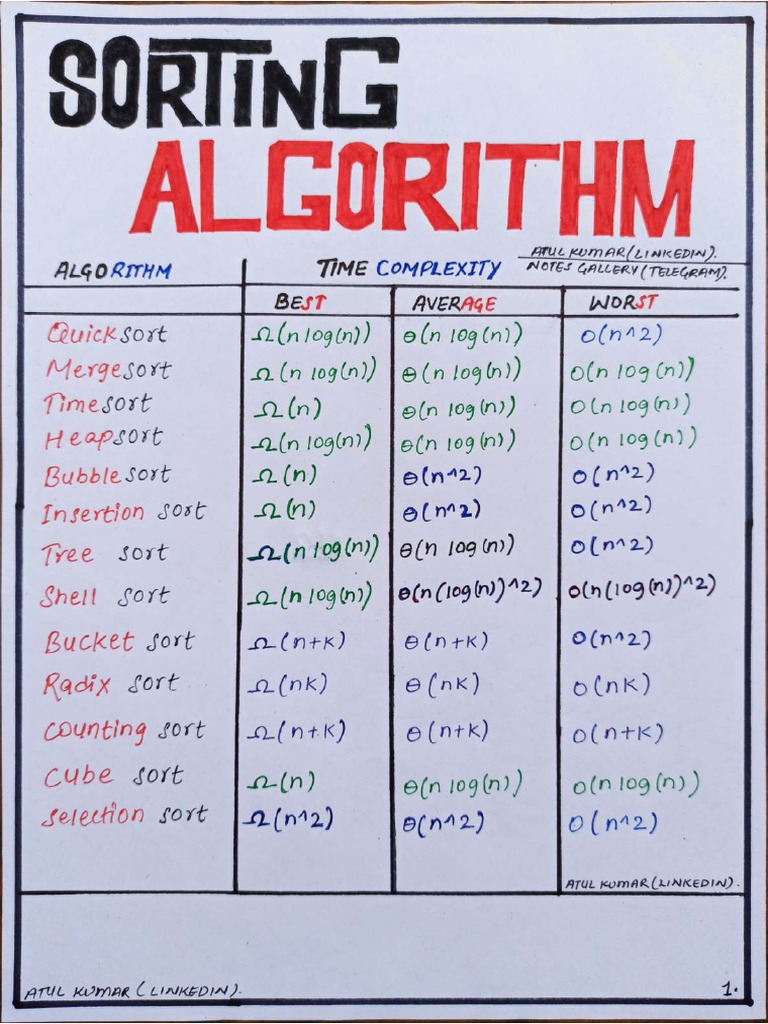 SORTING
ALGORITHM
ATUL KUMAR (LINKEDIN).
NOTES GALLERY (TELEGRAM).
ALGORITHM TIME COMPLEXITY
BEST AVERAGE WORST
Quick sort Ω(n log(n)) θ(n log(n)) O(n^2)
Merge sort Ω(n log(n)) θ(n log(n)) O(n log(n))
Time sort Ω(n) θ(n log(n)) O(n log(n))
Heap sort Ω(n log(n)) θ(n log(n)) O(n log(n))
Bubble sort Ω(n) θ(n^2) O(n^2)
Insertion sort Ω(n) θ(n^2) O(n^2)
Tree sort Ω(n log(n)) θ(n log(n)) O(n^2)
Shell sort Ω(n log(n)) θ(n(log(n))^2) O(n(log(n))^2)
Bucket sort Ω(n+k) θ(n+k) O(n^2)
Radix sort Ω(nk) θ(nk) O(nk)
Counting sort Ω(n+k) θ(n+k) O(n+k)
Cube sort Ω(n) θ(n log(n)) O(n log(n))
Selection sort Ω(n^2) θ(n^2) O(n^2)
ATUL KUMAR (LINKEDIN).
ATUL KUMAR (LINKEDIN). 1.